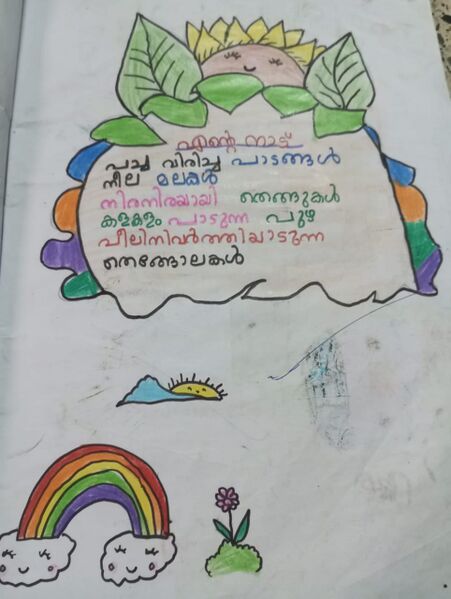 എന്റെ നാട്
പച്ച വിരിച്ച പാടങ്ങൾ
നീല മലകൾ
നിരനിരയായി തെങ്ങുകൾ
കളകളം പാടുന്ന പുഴ
പീലിനിവർത്തിയാടുന്ന
തെങ്ങോലകൾ